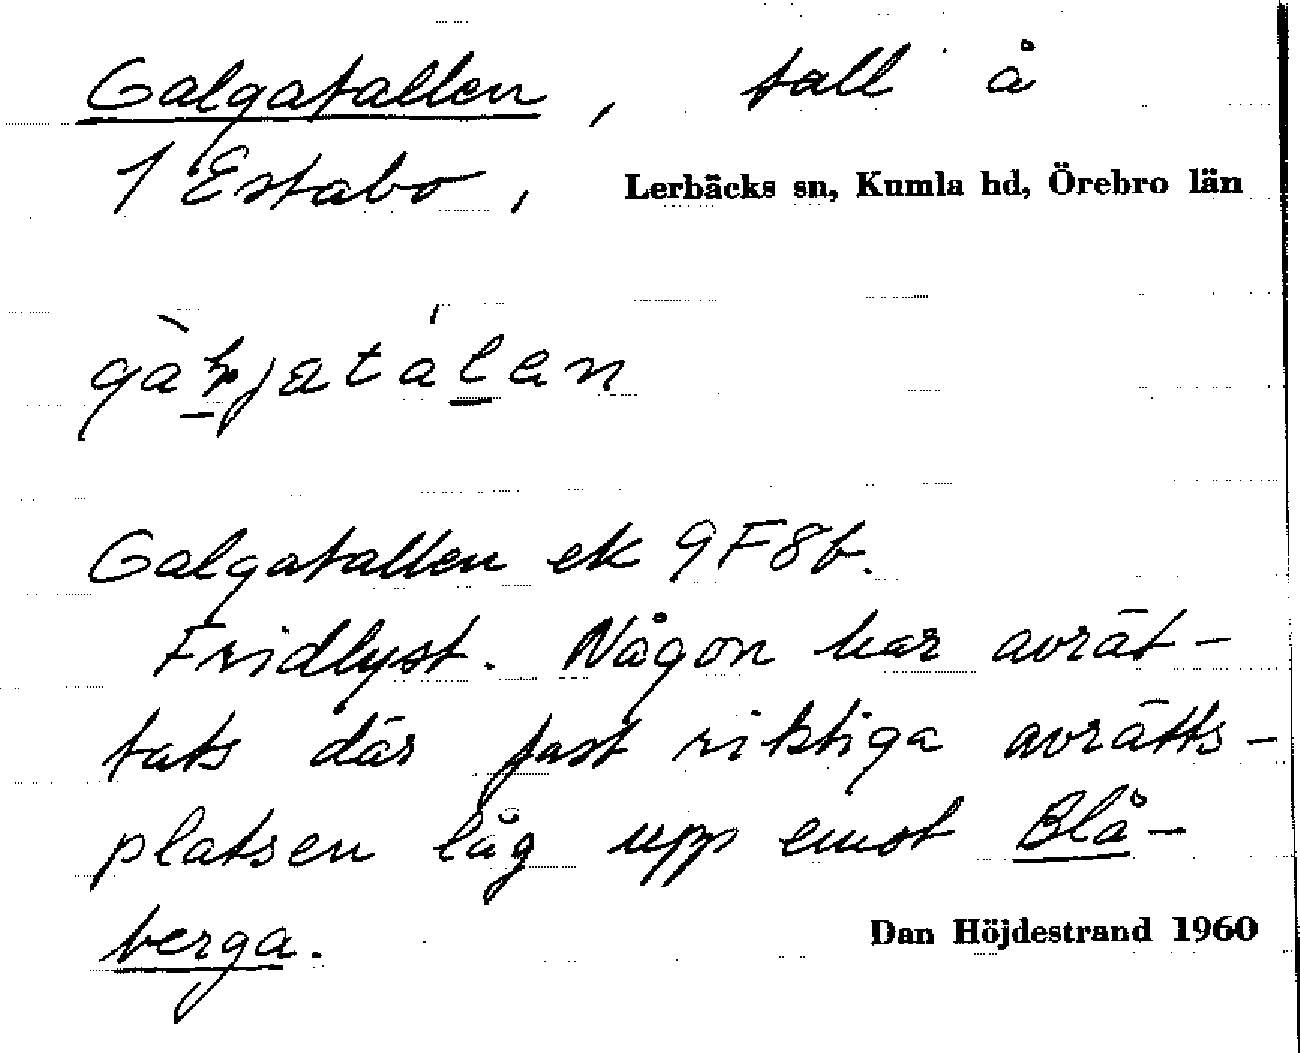 Galgatallen, tall å
1 Estabo, Lerbäcks sn, Kumla hd, Örebro län
Galgatallen ek 9F8b.
Fridlyst. Någon har avrät-
tats där fast riktiga avrätts-
platsen låg upp emot Blå-
berga.
Dan Höjdestrand 1960